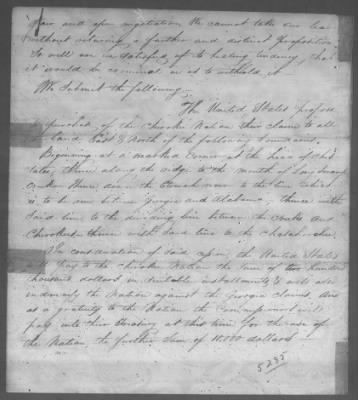 fair and open negotiation We cannot take our leave
without making a further and distinct proposition
So well are we satisfied of its healing tendency, that
it would be criminal in us to withold it
We Submit the following —
The United States propose
to purchase of the Cherokee Nation their claim to all
the Land East & North of the following boundaries.
Beginning at a marked corner at the head of
thence along the ridge to the mouth of Long Swamp
Creek thence down the to the line which
is to be run between Georgia and Alabama, thence with
Said line to the dividing line between the Creeks and
Cherokees thence with said line to the
In consideration of said cession, the United States
will pay to the Cherokee Nation the Sum of two hundred
thousand dollars in suitable installments & will also
indemnify the Nation against the Georgia claims. And
as a gratuity to the Nation the Commissioners will
pay into their treasury at this time for the use of
the Nation, the further Sum of 10.000 dollars
5285